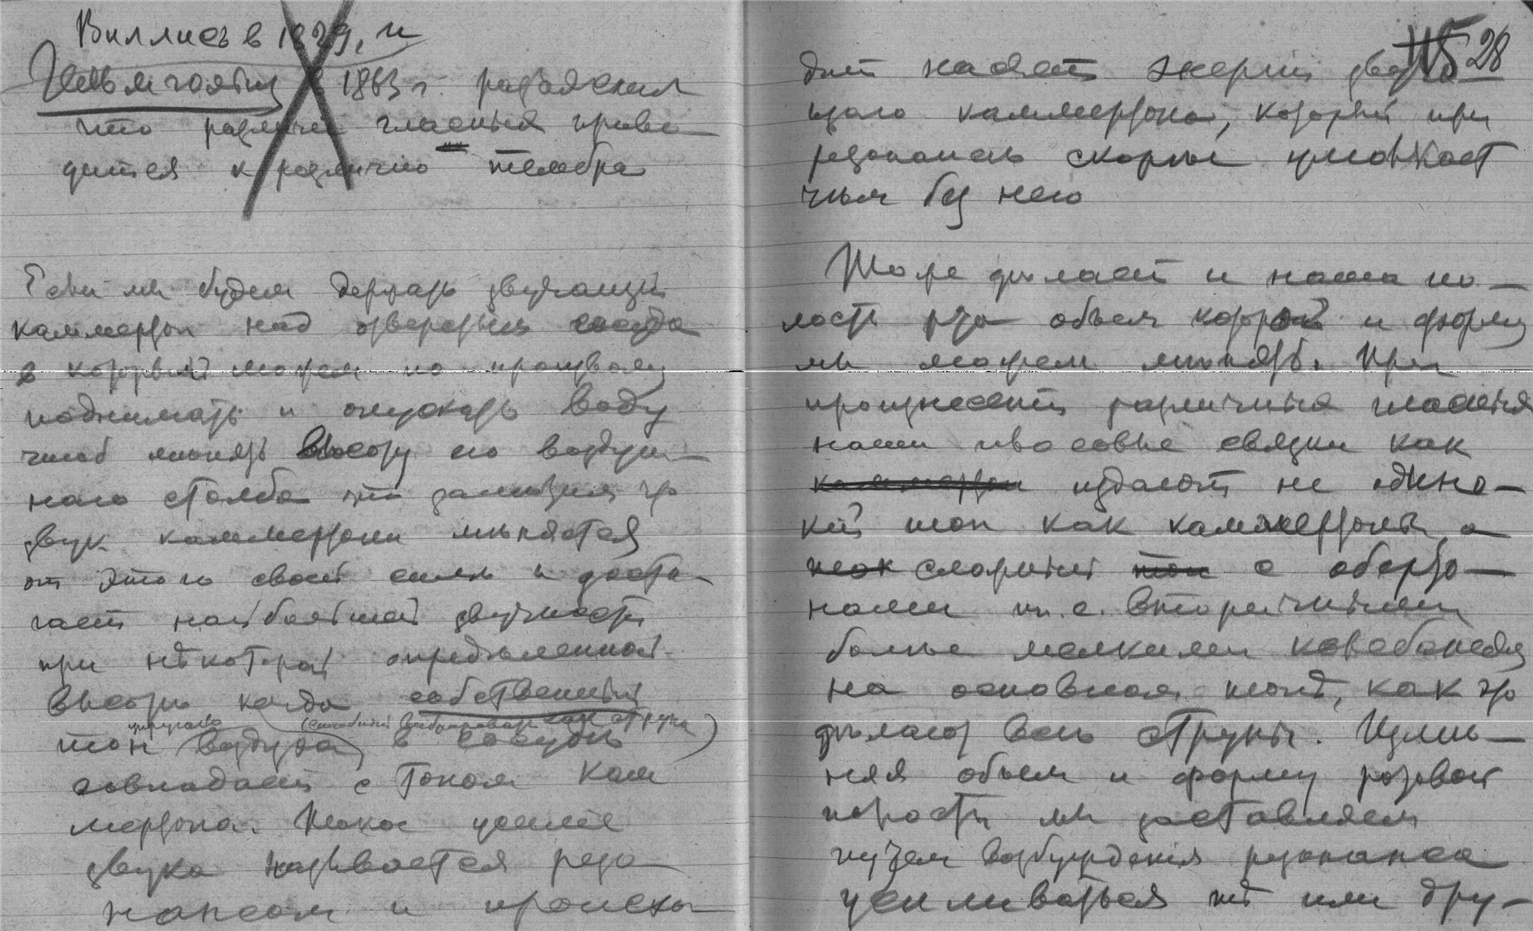 Виллись в 1829, и
Гельмгольтц в 1863 г. разъяснил
что различие гласныя приво
дится к различию тембра
Если мы будем держать звучащий
каммертон над отверстием сосуда
в который можем по произволу
поднимать и опускать воду
чтоб менять высоту его воздуш
наго столба то заметим что
звук каммертона меняется
от этого своей силе и дости-
гает наибольшей звучности
при нѣкоторой определенной
высоте когда собственный
(способный вибрировать как струна)
тон воздуха в сосудѣ
совпадает с тоном кам
мертона. Такое усиление
звука называется резо
нансом и происхо
115 28
дит на счет энергии звуча
щаго каммертона, который при
резонансѣ скорее умолкает
чѣм без него
То же дѣлает и наша по-
лость рта объем которой и форму
мы можем менять. При
произнесении различных гласных
наши голосовые связки как
каммертон издают не одино-
кий тон как каммертоны, а
сложный тон с оберто-
нами т. е. вторичными
более мелкими колебаниями
на основном тонѣ, как это
дѣлают всѣ струны. Измѣ-
няя объем и форму ротовой
полости мы заставляем
путем возбуждения резонанса
усиливаться тѣ или дру-